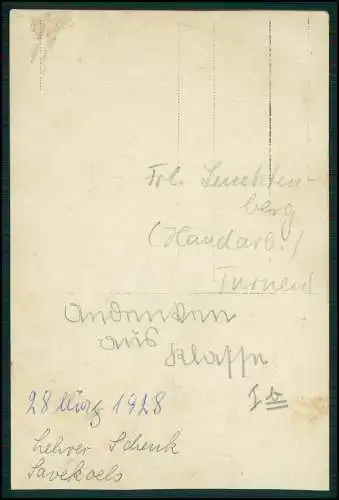 Frl. Leuchten-
berg
(Handarb.)
Turnen
Andenken
aus
Klasse
I b
28 März 1928
Lehrer Schenk
Savekoels